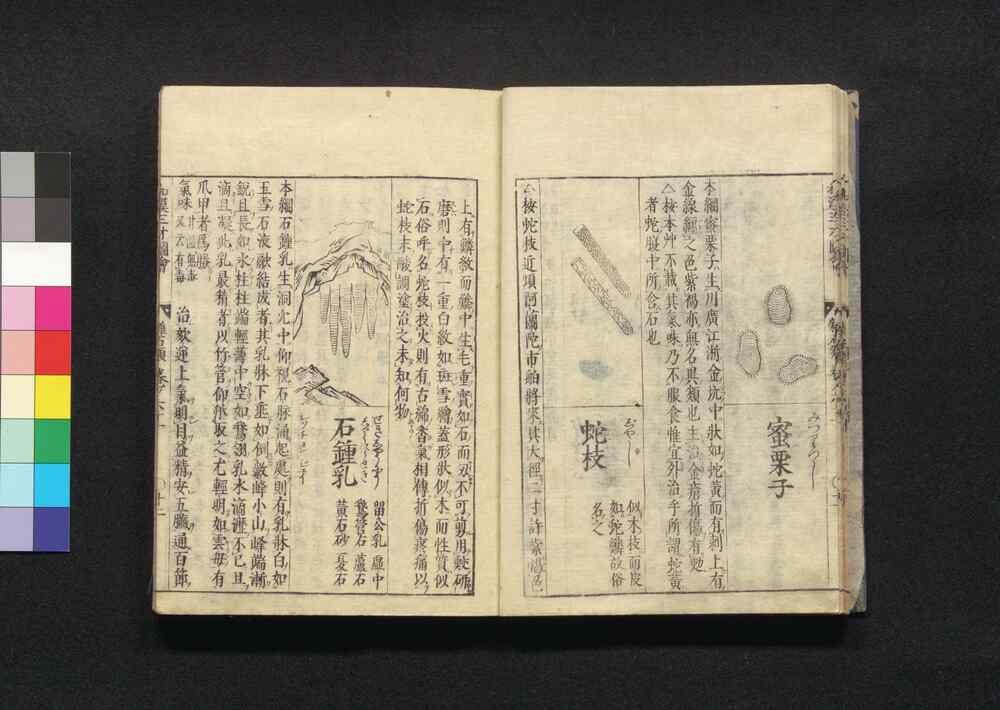 蜜栗子
本綱蜜栗子生川廣江浙金坑中狀如蛇黃而有刺上有
金線纏之色紫褐亦無名異類也主治金瘡折傷有効
△按本艸不載其氣味乃不服食惟宜外治乎所謂蛇黃
者蛇腹中所含石也
蛇枝
似木枝而皮
如蛇鱗故俗
名之
△按蛇枝近頃阿蘭陀市舶將來其大徑二寸許紫褐色
上有鱗紋而鱗中生毛重實如石而
石鍾乳
留公乳 虛中
蘆石
黃石砂 夏石
本綱石鍾乳生洞穴中仰視石脉涌起處則有乳牀白如
玉雪石液融結成者其乳牀下垂如倒數峰小山峰端漸
銳且長如氷柱柱端輕薄中空如鵞翎乳水滴瀝不已且
滴且凝此乳最精者以竹管仰承取之尤輕明如雲母有
爪甲者爲勝
氣味
甘溫無毒
又云有毒
治欬逆上氣明目益精安五臟通百節
磨則中有一重白紋如斑雪
石俗呼名蛇枝投火則有古綿香氣相傳折傷疼痛以
蛇枝末酸調塗治之未知何物